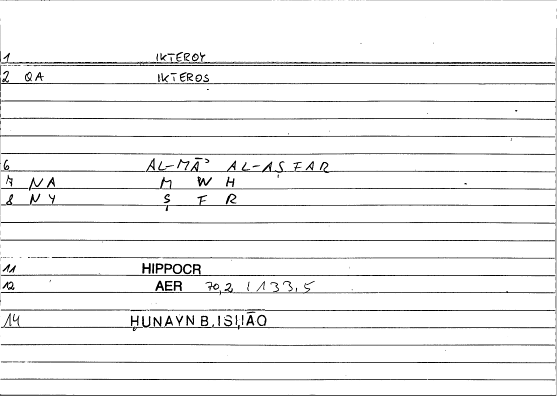 1 IKTEROY
2 QA IKTEROS
6 AL-MĀʾ AL-AṢFAR
7 NA M W H
8 NY Ṣ F R
11 HIPPOCR
12 AER 70,2 / 133,5
14 ḤUNAYN B. ISḤĀQ